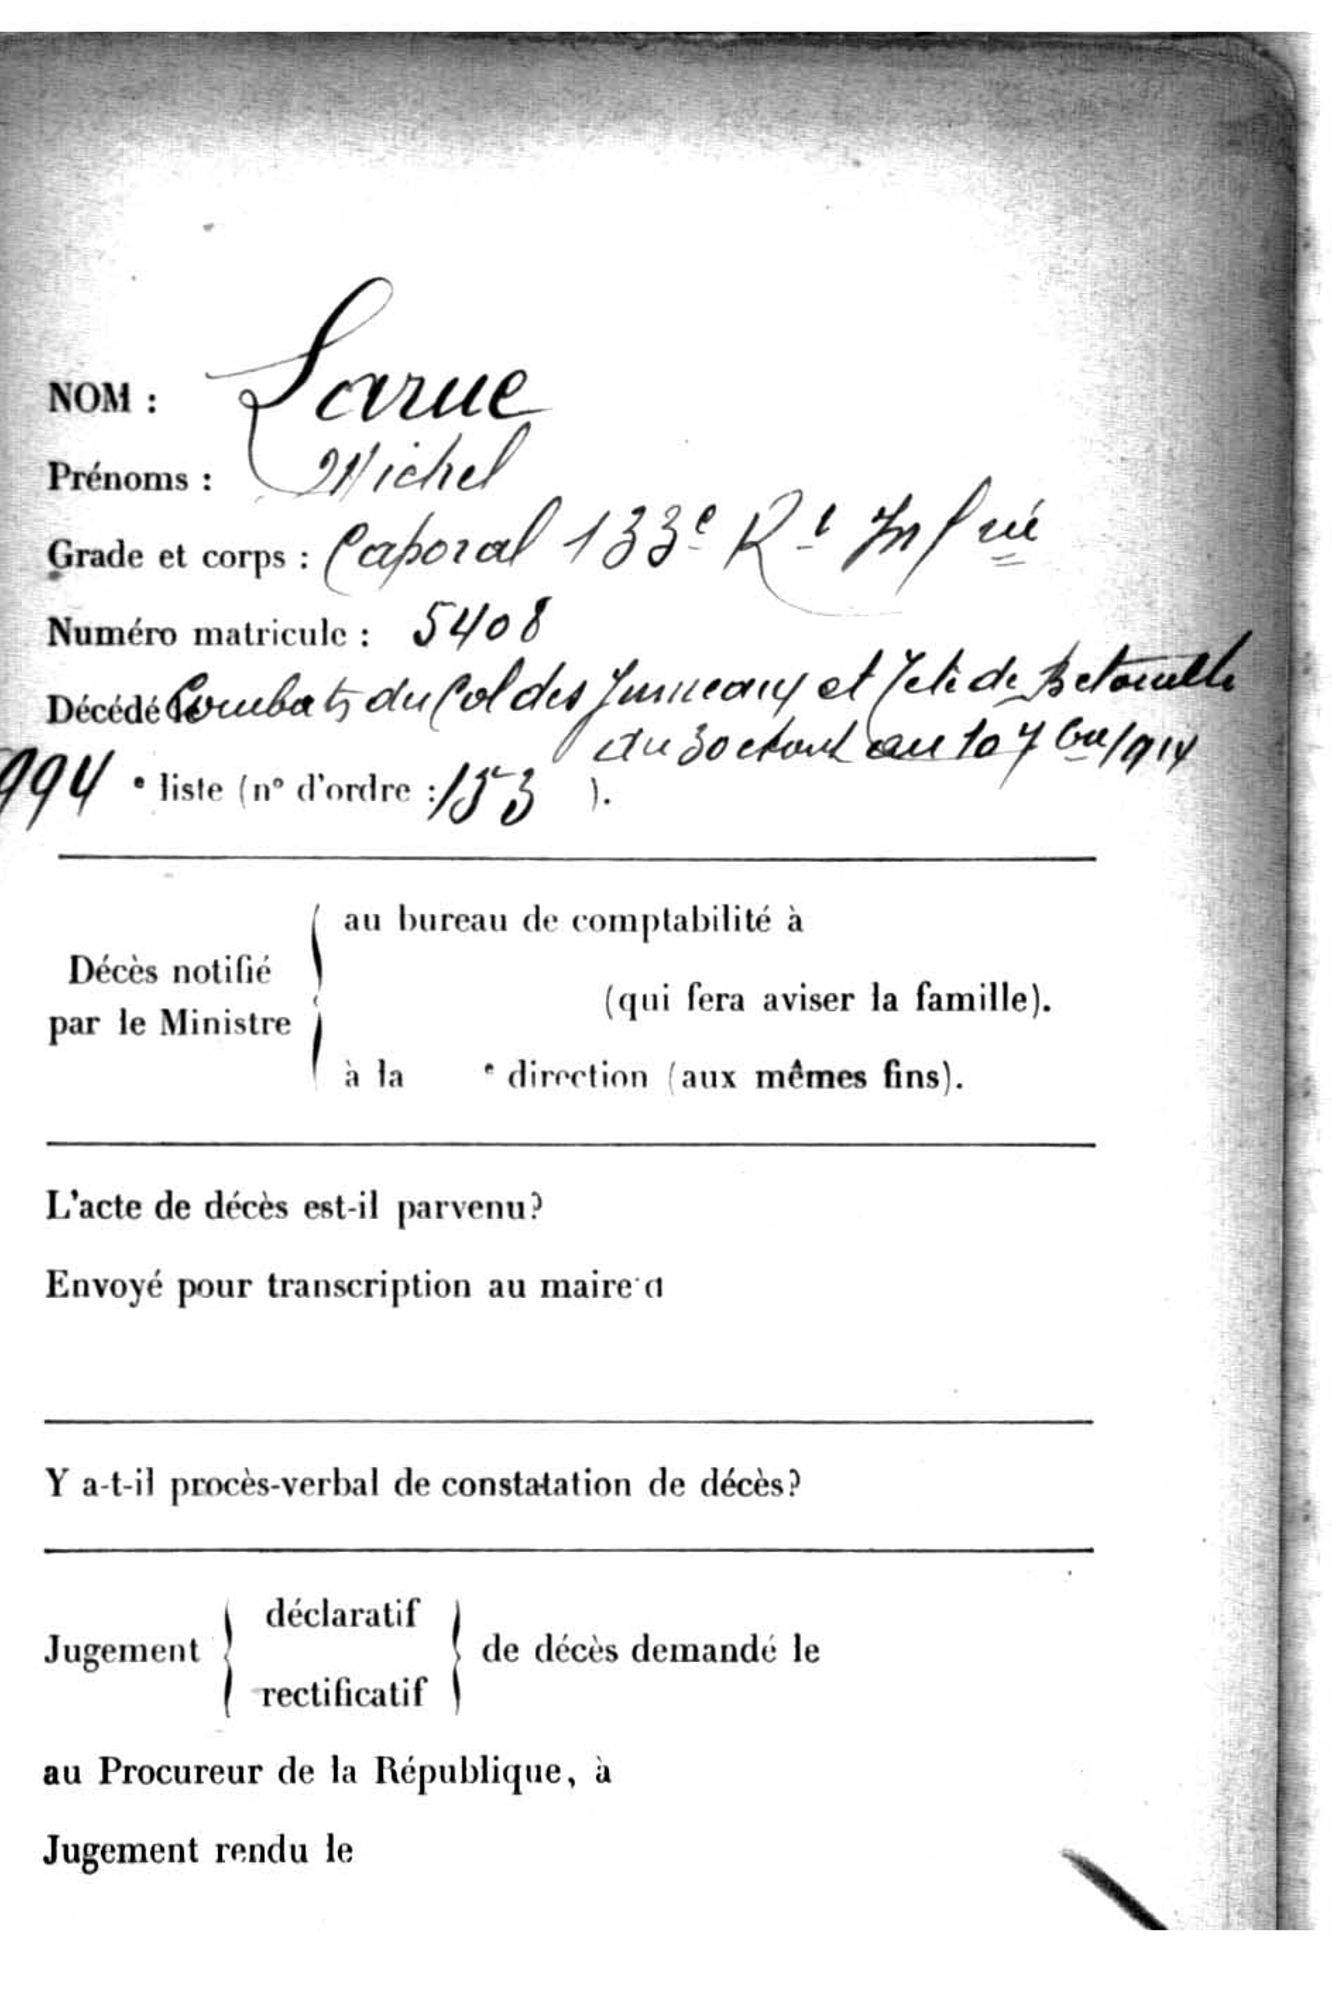 NOM : Larue
Prénoms : Michel
Grade et corps : Caporal 133e Rt Infrie
Numéro matricule : 5408
Décédé Combats du Col des Jumeaux et Tête de Behouille
du 30 au 10 7bre 1914
994 e liste (n° d'ordre : 153 ).
Décès notifié
par le Ministre
au bureau de comptabilité à
(qui fera aviser la famille).
à la e direction (aux mêmes fins).
L'acte de décès est-il parvenu?
Envoyé pour transcription au maire d
Y a-t-il procès-verbal de constatation de décès?
Jugement déclaratif rectificatif de décès demandé le
au Procureur de la République, à
Jugement rendu le